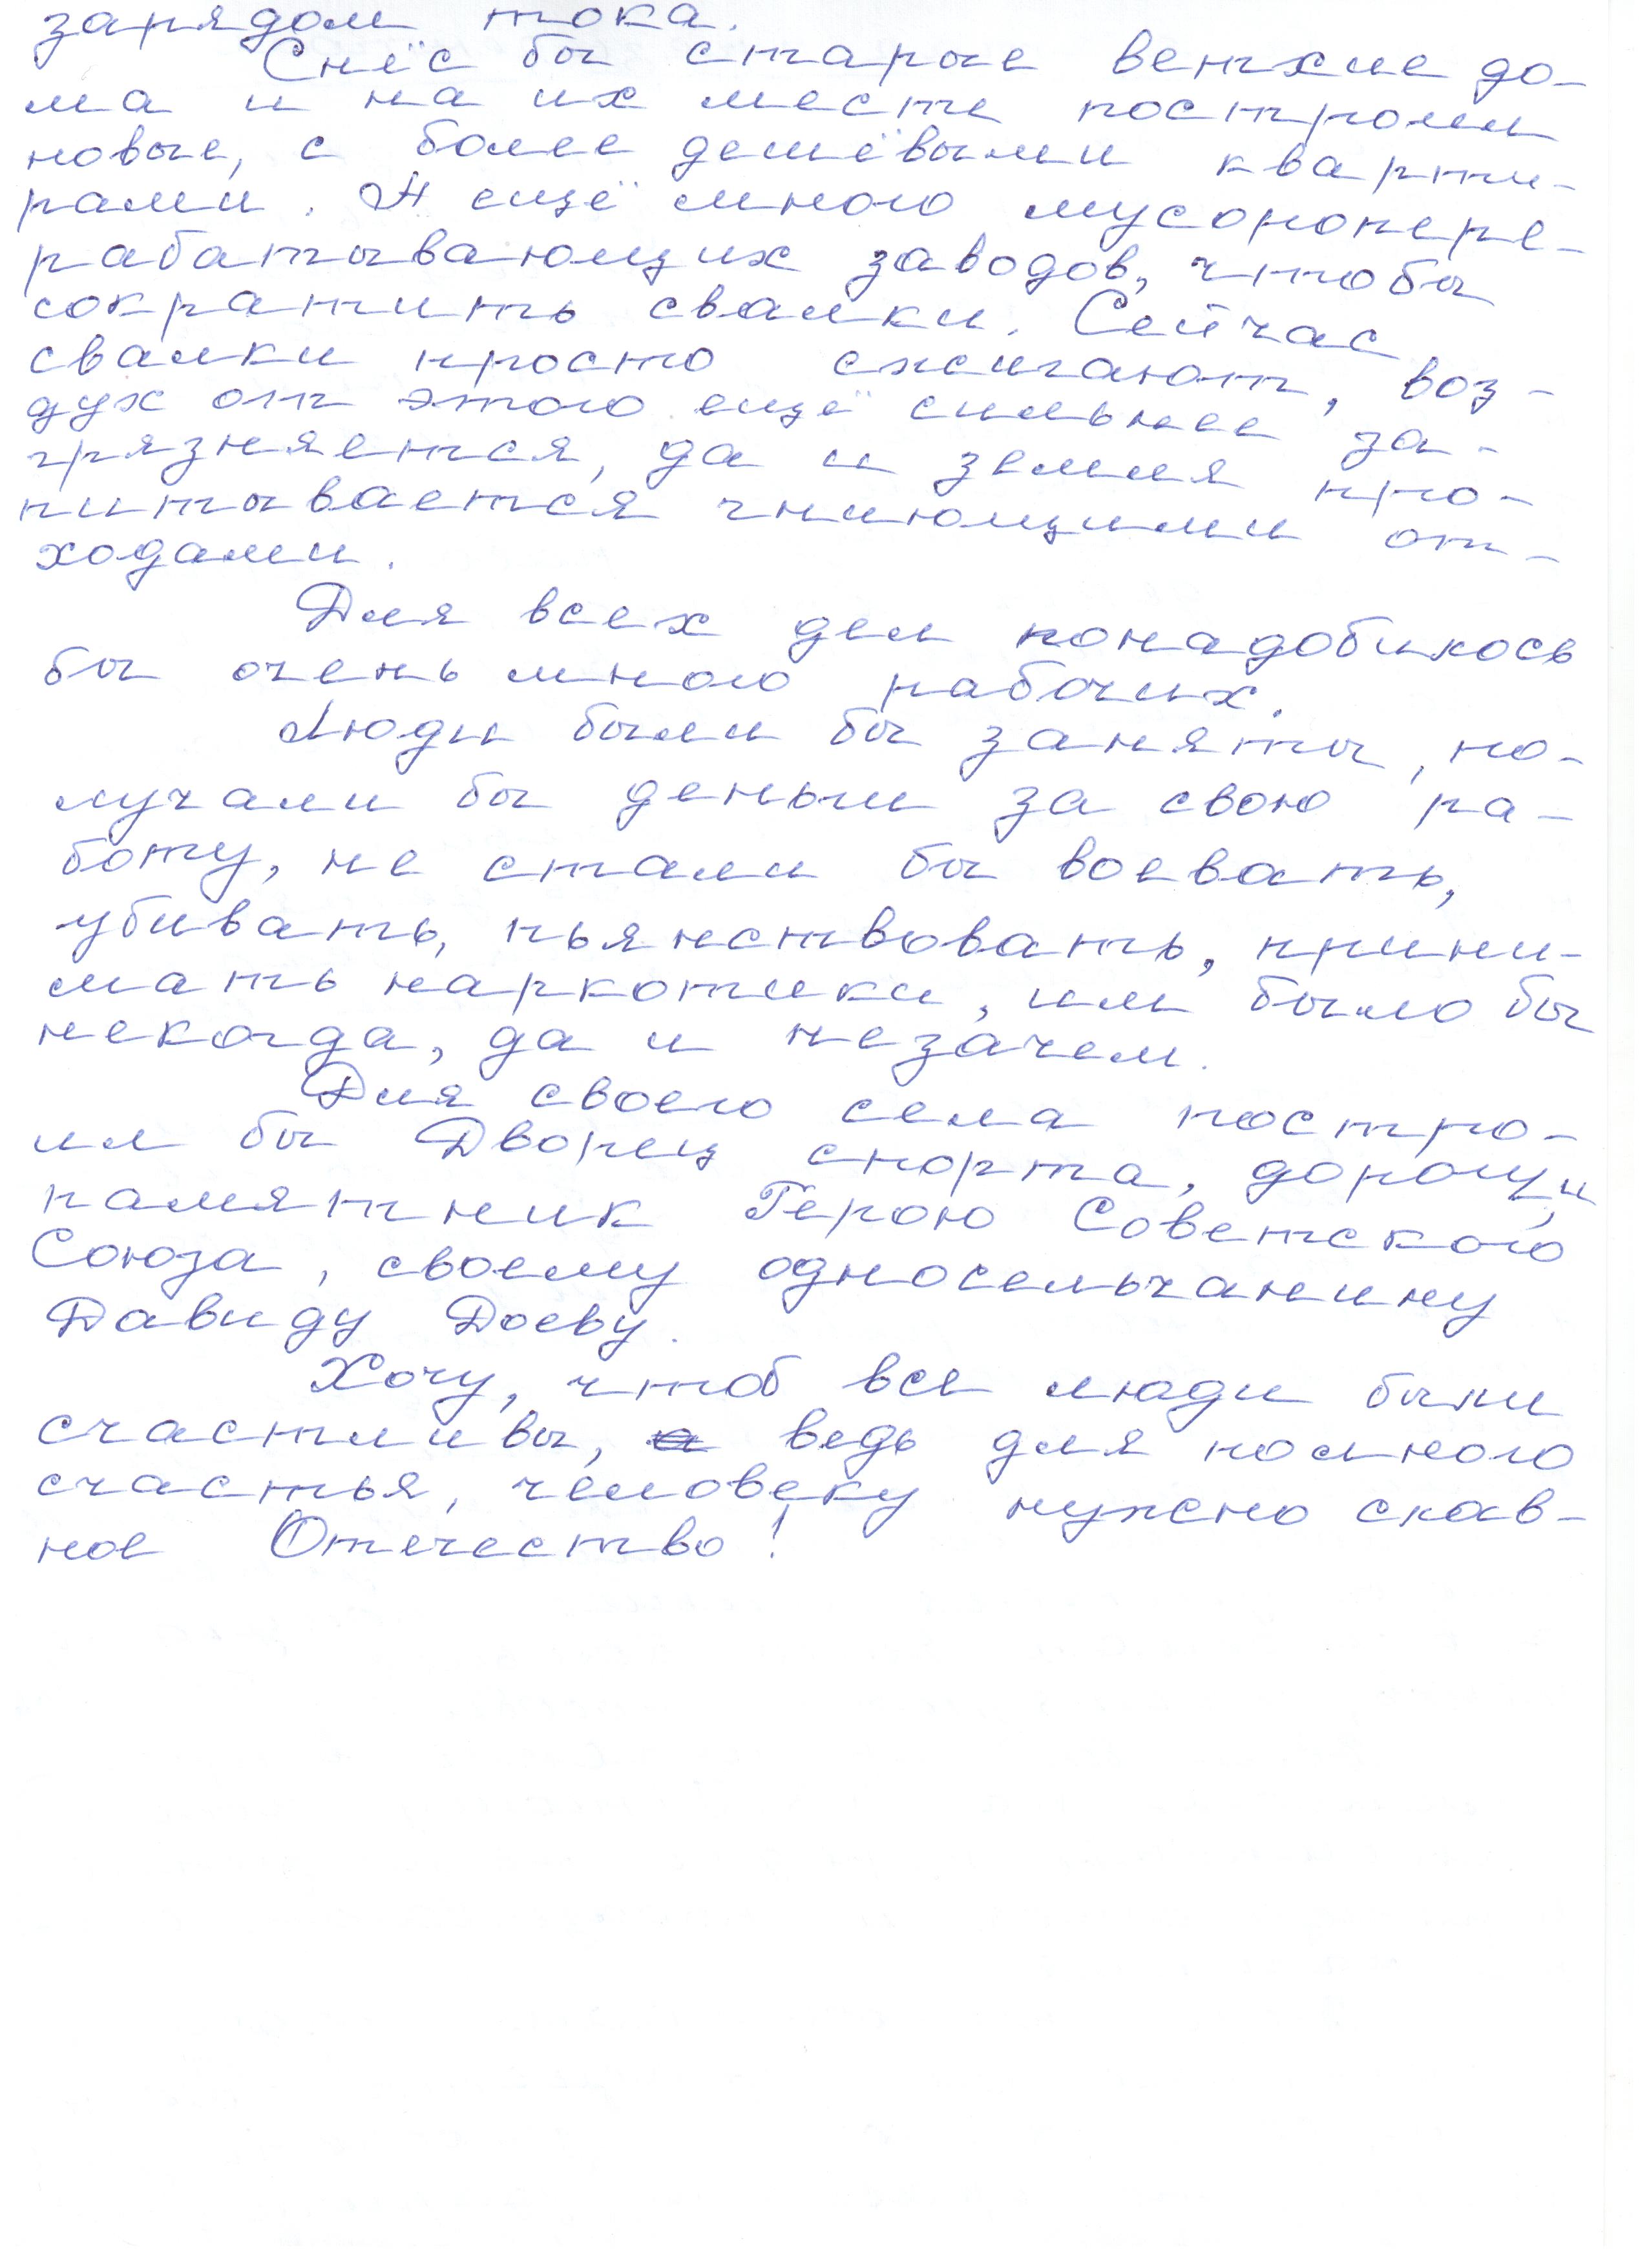 зарядом тока.
Снёс бы старые ветхие до-
ма и на их месте построил
новые, с более дешёвыми кварти-
рами. А ещё много мусоропере-
рабатывающих заводов, чтобы
сократить свалки. Сейчас
свалки просто сжигают, воз-
дух от этого ещё сильнее за-
грязняется, да и земля про-
питывается гниющими от-
ходами.
Для всех дел понадобилось
бы очень много рабочих.
Люди были бы заняты, по-
лучали бы деньги за свою ра-
боту, не стали бы воевать,
убивать, пьянствовать, прини-
мать наркотики, им было бы
некогда, да и незачем.
Для своего села постро-
ил бы Дворец спорта, дорогу, и
памятник Герою Советского
Союза, своему односельчанину
Давиду Доеву.
Хочу, чтоб все люди были
счастливы, ведь для полного
счастья, человеку нужно слав-
ное Отечество!